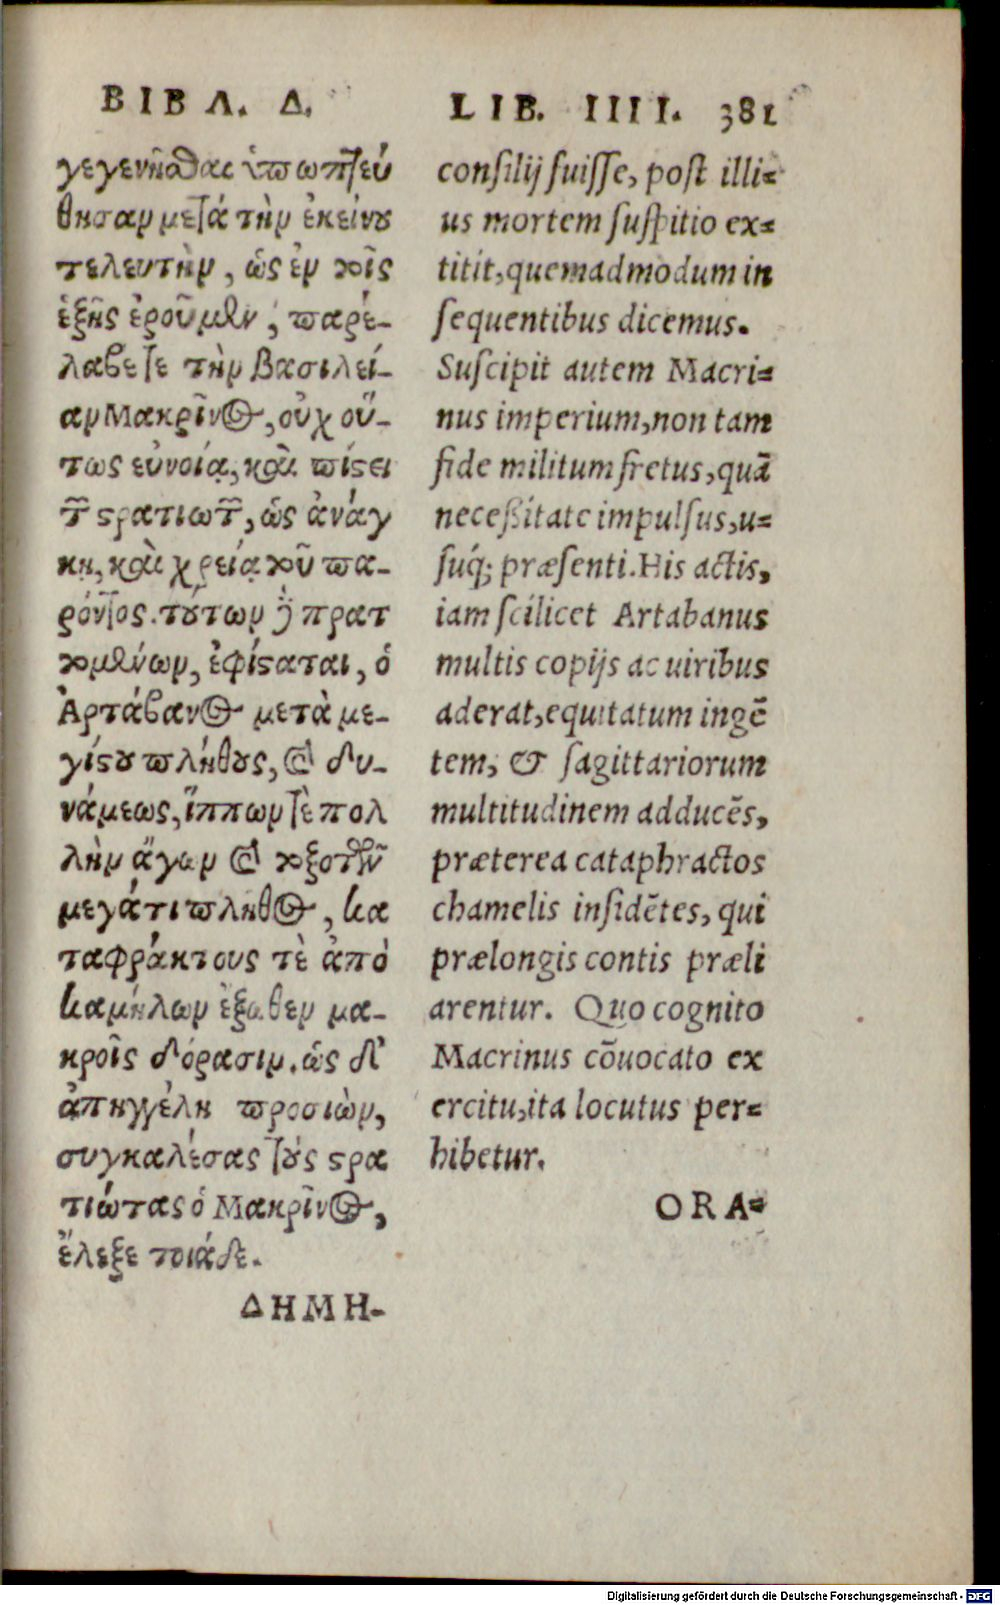 ΒΙΒΛ. Δ.
γεγενῆσθαι ὑπωπτεύ
θησαν μετά τὴν ἐκείνου
τελευτὴν, ὡς ἐν τοῖς
ἑξῆς ἐροῦμεν, παρέ-
λαβε τε τὴν βασιλεί-
αν Μακρῖνος, οὐχ οὕ-
τως εὐνοίᾳ, καὶ πίστει
τῶν στρατιωτῶν, ὡς ἀνάγ
κῃ, καὶ χρείᾳ τοῦ πα-
ρόντος. τούτων δὲ πρατ
τομένων, ἐφίσταται, ὁ
Ἀρτάβανος μετὰ με-
γίστου πλήθους, καὶ δυ-
νάμεως, ἵππων τὲ πολ
λὴν ἄγων καὶ τοξοτῶν
μεγάτι πλῆθος, κα
ταφράκτους τὲ ἀπό
καμήλων ἔξωθεν μα-
κροῖς δόρασιν. ὡς δ'
ἀπηγγέλη προσιὼν,
συγκαλέσας τοὺς στρα
τιώτας ὁ Μακρῖνος,
ἔλεξε τοιάδε.
ΔΗΜΗ-
LIB. IIII. 381
consilij fuisse, post illi-
us mortem suspitio ex-
titit, quemadmodum in
sequentibus dicemus.
Suscipit autem Macri-
nus imperium, non tam
fide militum fretus, quā
necessitate impulsus, u-
suq́; præsenti. His actis,
iam scilicet Artabanus
multis copijs ac uiribus
aderat, equitatum ingē
tem, & sagittariorum
multitudinem adducēs,
præterea cataphractos
chamelis insidētes, qui
prælongis contis præli
arentur. Quo cognito
Macrinus cōuocato ex
ercitu, ita locutus per-
hibetur.
ORA-
Digitalisierung gefördert durch die Deutsche Forschungsgemeinschaft - DFG